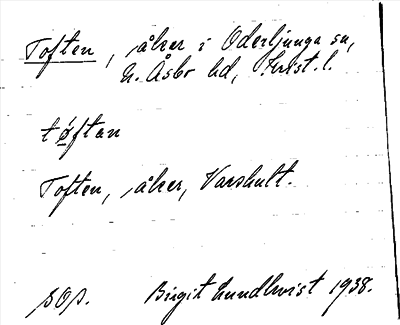 Toften, åker i Oderljunga sn,
N. Åsbo hd, Krist. l.
tøftan
Toften, åker, Varshult.
sop. Birgit Lundkvist 1938.